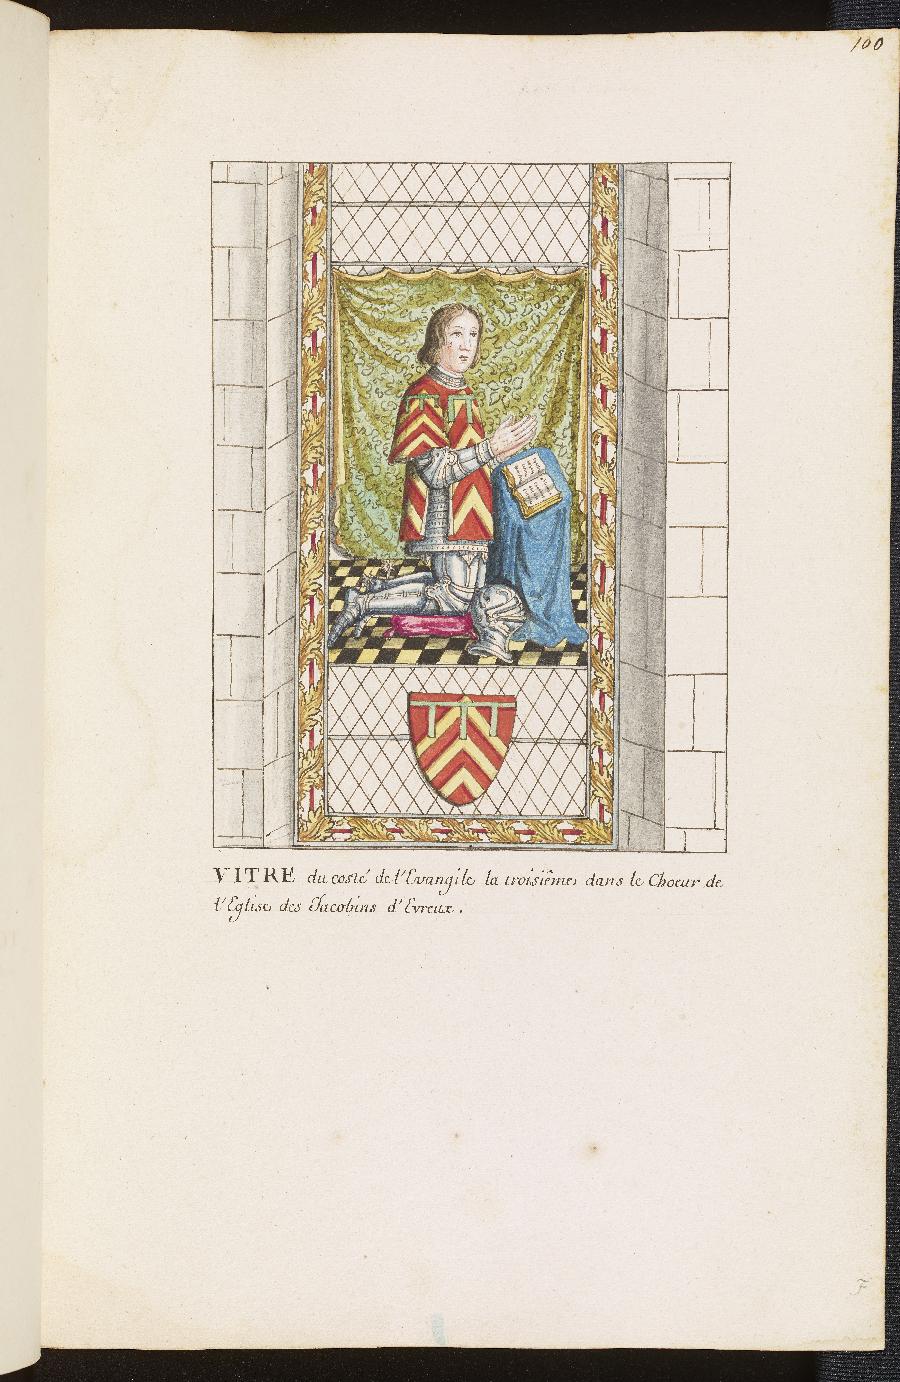 100
VITRE du costé de l'Evangile la troisiême dans le Choeur de
l'Eglise des Jacobins d'Evreux.
F